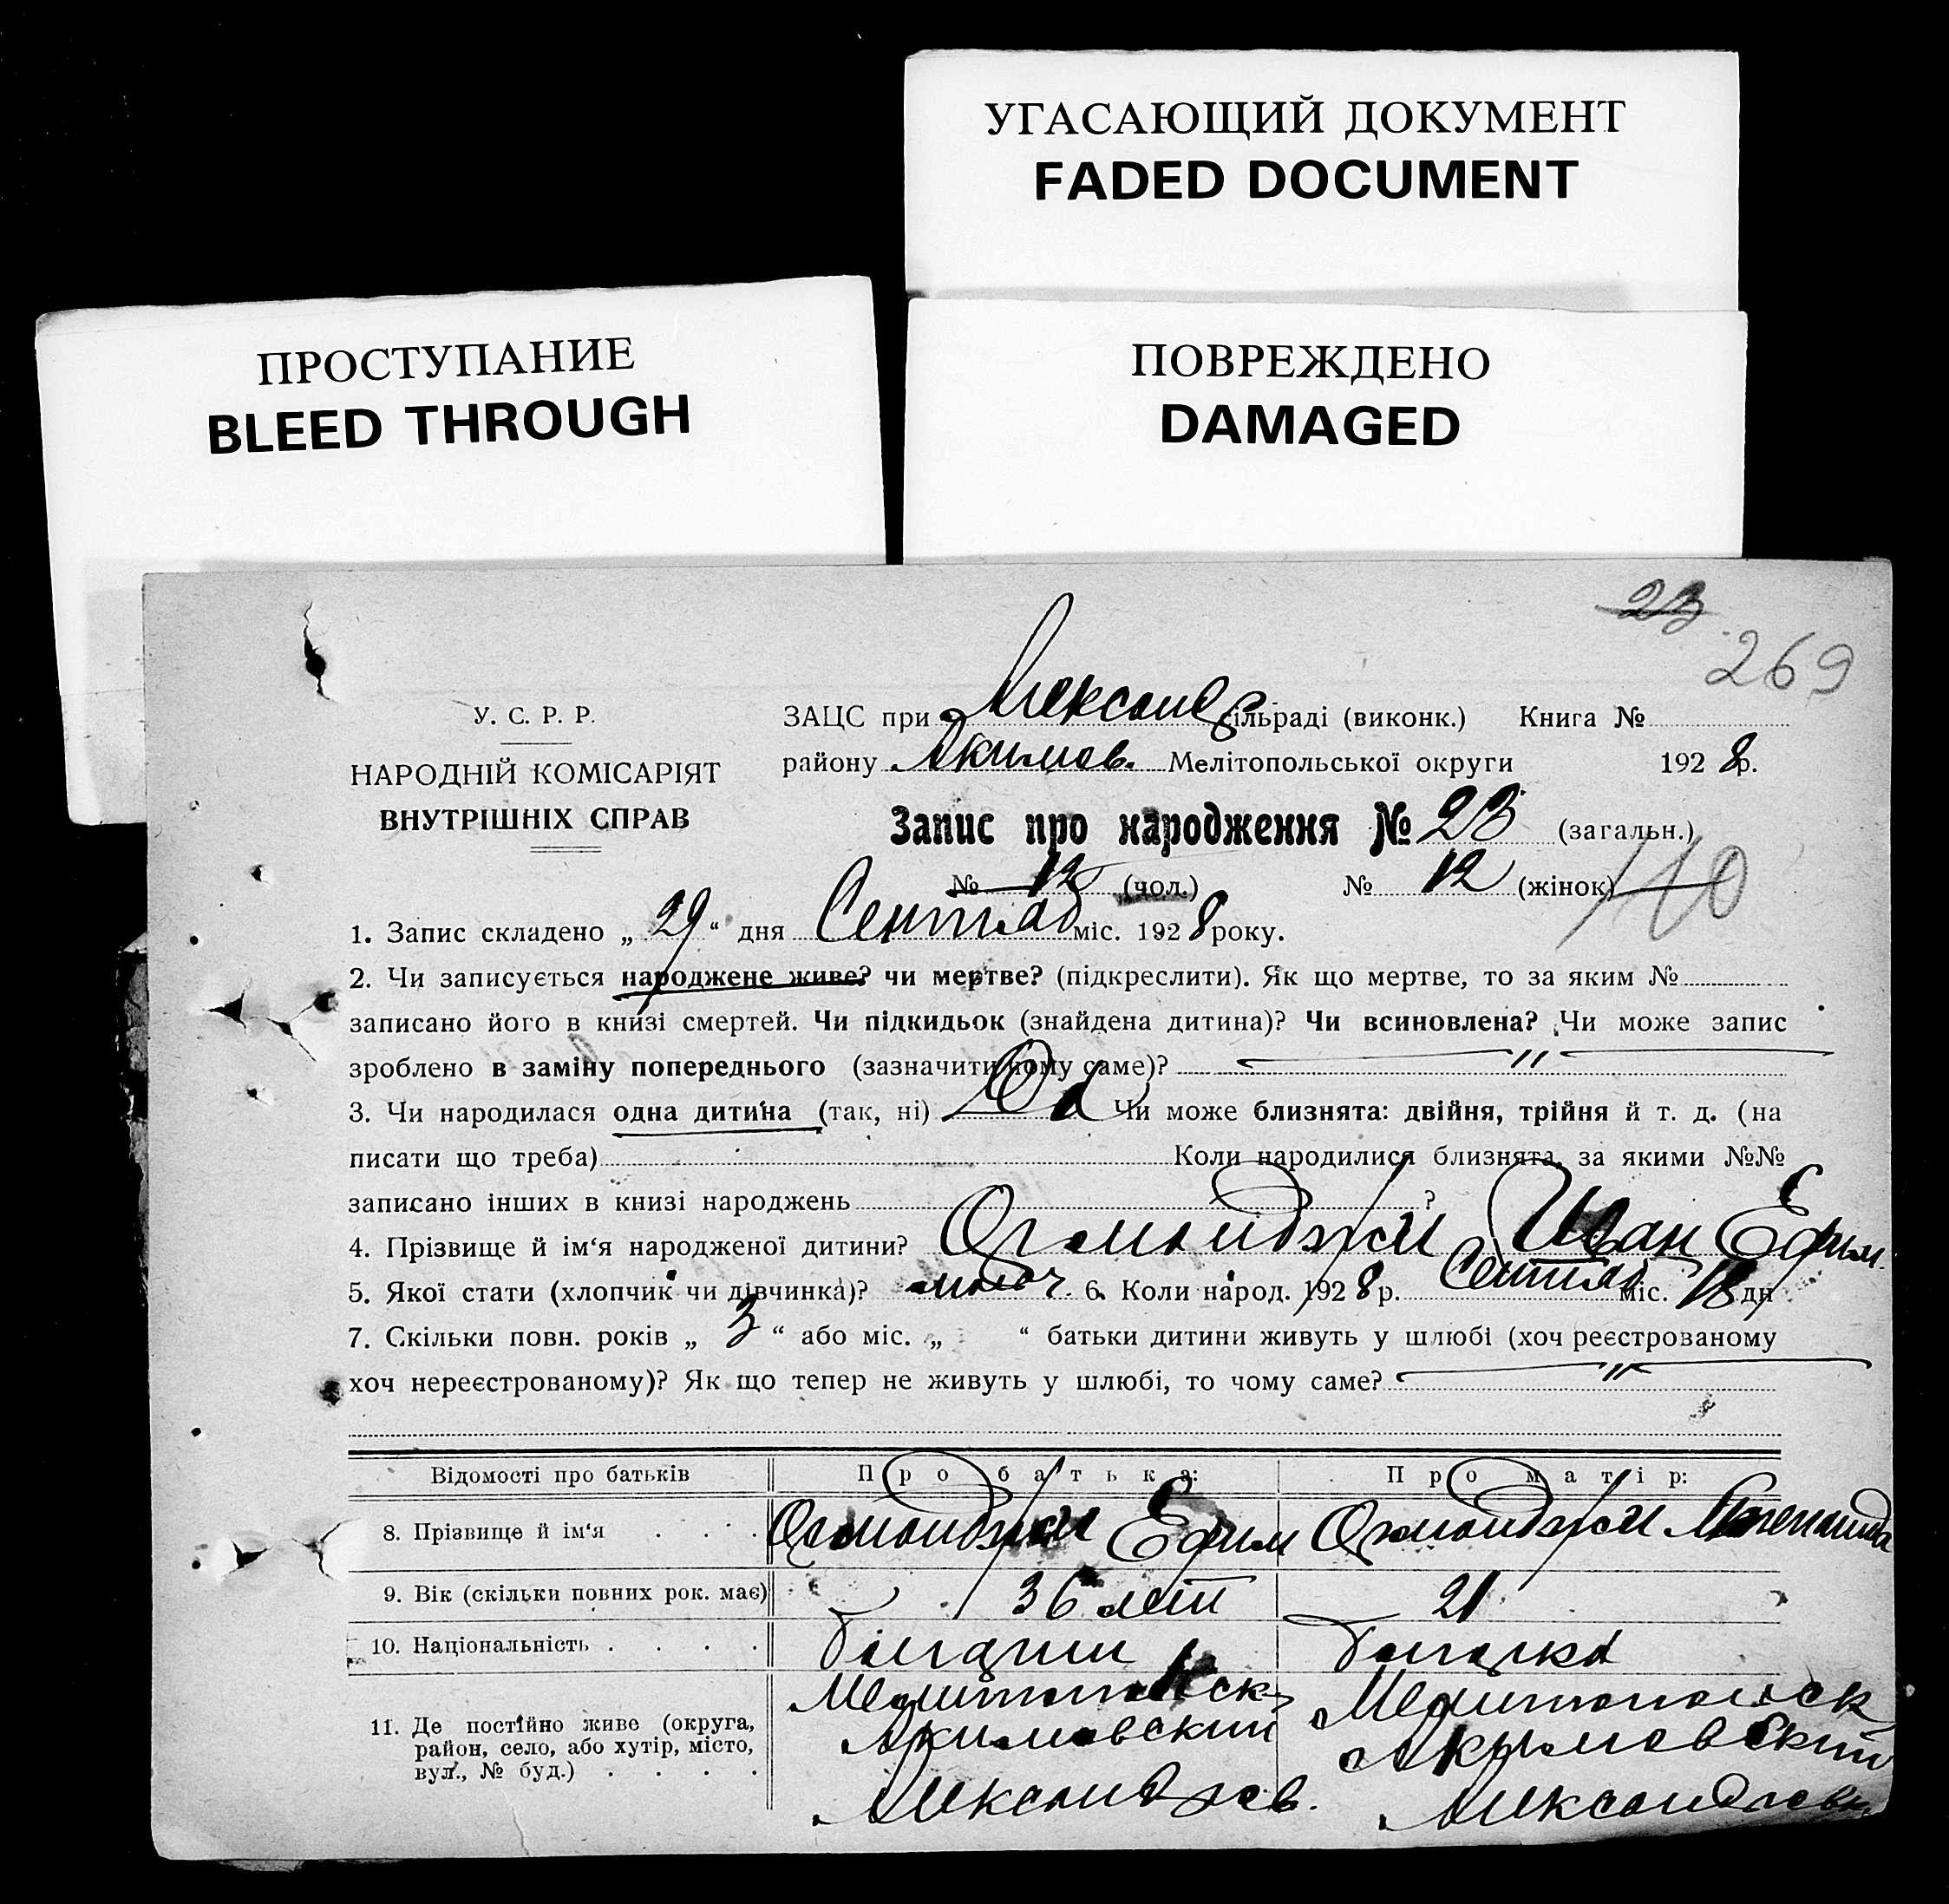 УГАСАЮЩИЙ ДОКУМЕНТ
FADED DOCUMENT
ПРОСТУПАНИЕ
BLEED THROUGH
ПОВРЕЖДЕНО
DAMAGED
23
269
У. С. Р. Р.
НАРОДНІЙ КОМІСАРІЯТ
ВНУТРІШНІХ СПРАВ
ЗАЦС при Александ сільраді (виконк.) Книга №
району Акимов. Мелітопольської округи 1928 р.
Запис про народження № 23 (загальн.)
№ 12 (чол.) № 12 (жінок) 110
1. Запис складено „ 29 “ дня Сентяб міс. 1928 року.
2. Чи записується народжене живе? чи мертве? (підкреслити). Як що мертве, то за яким №
записано його в книзі смертей. Чи підкидьок (знайдена дитина)? Чи всиновлена? Чи може запис
зроблено в заміну попереднього (зазначити чому саме)? "
3. Чи народилася одна дитина (так, ні) Да Чи може близнята: двійня, трійня й т. д. (на
писати що треба) Коли народилися близнята, за якими №№
записано інших в книзі народжень ?
4. Прізвище й ім‘я народженої дитини? Иван Ефим.
5. Якої стати (хлопчик чи дівчинка)? 6. Коли народ. 1928 р. Сентяб міс. 18 дн
7. Скільки повн. років „ 3 “ або міс. „ “ батьки дитини живуть у шлюбі (хоч реєстрованому
хоч нереєстрованому)? Як що тепер не живуть у шлюбі, то чому саме? "
Відомості про батьків Про батька: Про матір:
8. Прізвище й ім‘я . . . . Ефим
9. Вік (скільки повних рок. має) 36 лет 21
10. Національність . . . . болгарин болгарка
11. Де постійно живе (округа,
район, село, або хутір, місто,
вул., № буд.) . . . .
Мелитопольск Мелитопольск
Акимовский Акымовский
Александров. Александровк